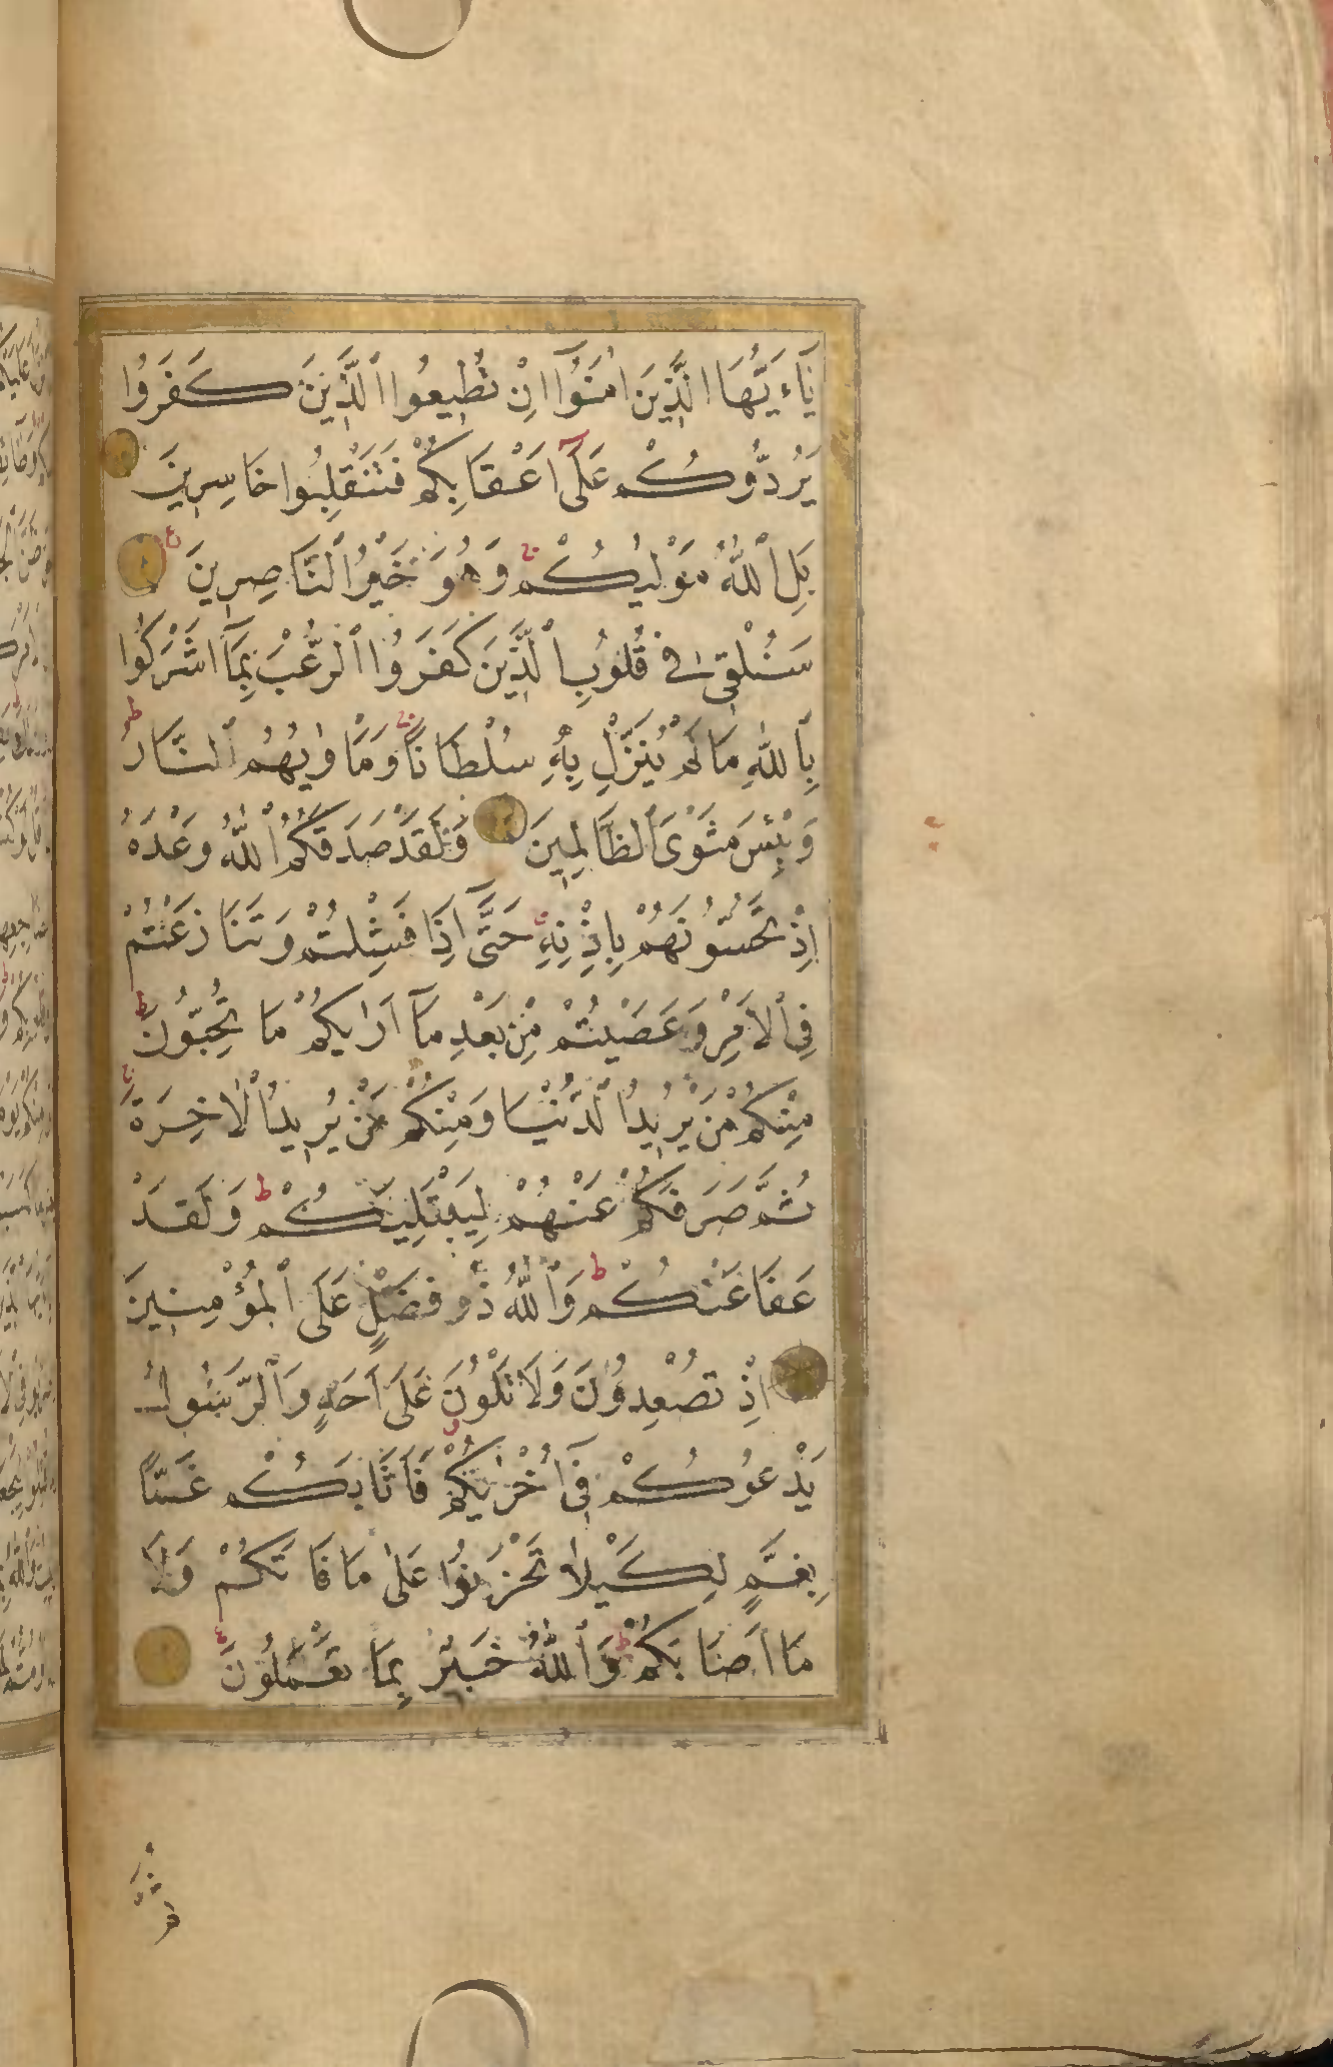 يَآءَيُّهَا الَّذِينَ اٰمَنُوٓا اِنْ تُطِيعُوا الَّذِينَ كَفَرُوا
يَرُدُّوكُمْ عَلٰٓى اَعْقَابِكُمْ فَتَنْقَلِبُوا خَاسِرِينَ
بَلِ اللّٰهُ مَوْلٰيكُمْ وَهُوَ خَيْرُ النَّاصِرِينَ
سَنُلْقِى فِى قُلُوبِ الَّذِينَ كَفَرُوا الرُّعْبَ بِمَآ اَشْرَكُوا
بِاللّٰهِ مَا لَمْ يُنَزِّلْ بِهِ سُلْطَانًا وَمَاْوٰيهُمُ النَّارُ
وَبِئْسَ مَثْوَى الظَّالِمِينَ وَلَقَدْ صَدَقَكُمُ اللّٰهُ وَعْدَهُ
اِذْ تَحُسُّونَهُمْ بِاِذْنِهِ حَتَّىٓ اِذَا فَشِلْتُمْ وَتَنَازَعْتُمْ
فِى الْاَمْرِ وَعَصَيْتُمْ مِنْ بَعْدِ مَآ اَرٰيكُمْ مَا تُحِبُّونَ
مِنْكُمْ مَنْ يُرِيدُ الدُّنْيَا وَمِنْكُمْ مَنْ يُرِيدُ الْاٰخِرَةَ
ثُمَّ صَرَفَكُمْ عَنْهُمْ لِيَبْتَلِيَكُمْ وَلَقَدْ
عَفَا عَنْكُمْ وَاللّٰهُ ذُو فَضْلٍ عَلَى الْمُؤْمِنِينَ
اِذْ تُصْعِدُونَ وَلَا تَلْوُنَ عَلٰٓى اَحَدٍ وَالرَّسُولُ
يَدْعُوكُمْ فِىٓ اُخْرٰيكُمْ فَاَثَابَكُمْ غَمًّا
بِغَمٍّ لِكَيْلَا تَحْزَنُوا عَلٰى مَا فَاتَكُمْ وَلَا
مَآ اَصَابَكُمْ وَاللّٰهُ خَبِيرٌ بِمَا تَعْمَلُونَ